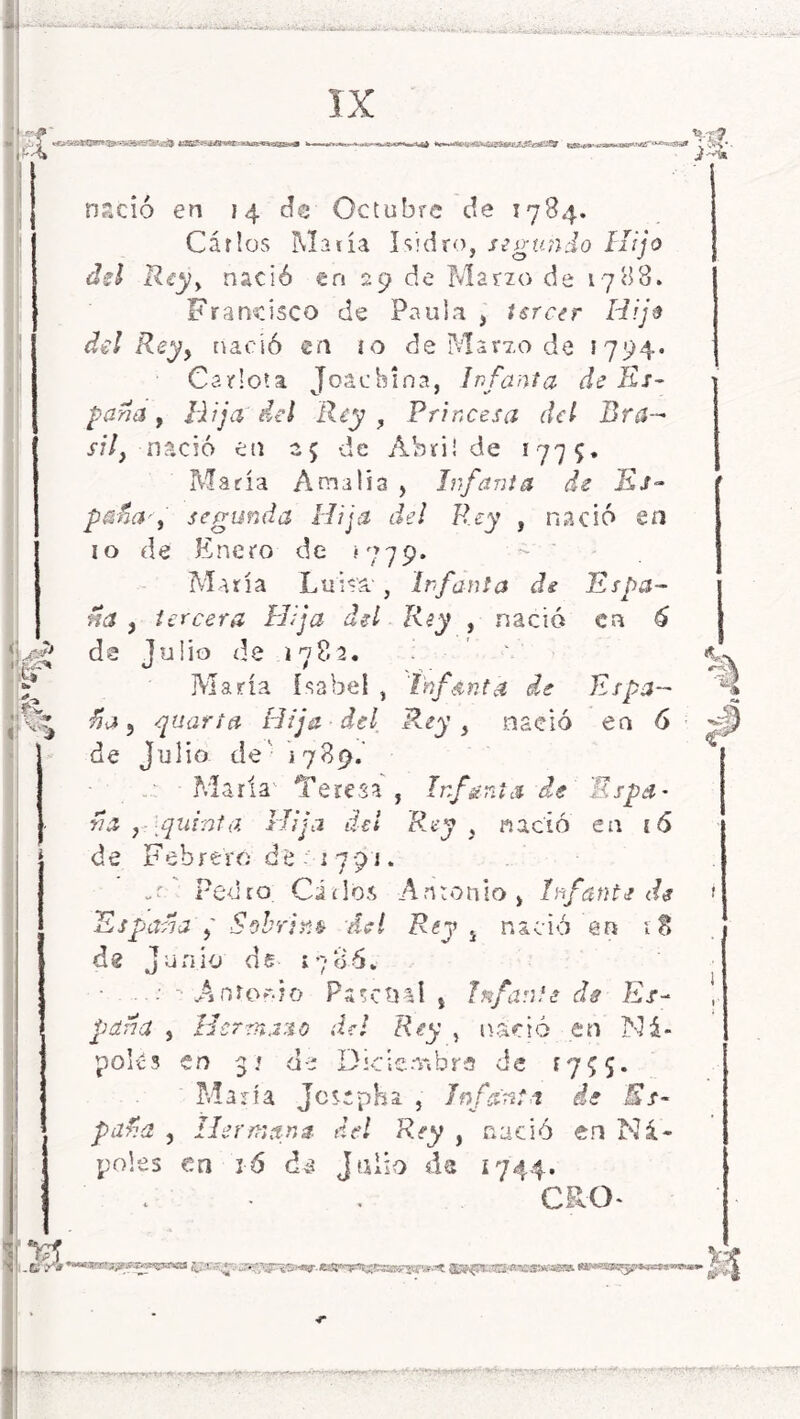 IX
nació en 14 de Octubre de 1784.
Cárlos María Isidro, segundo Hijo
del Rey, nació en 29 de Marzo de 1788.
Francisco de Paula, tercer Hijo
del Rey, nació en 10 de Marzo de 1794.
Carlota Joachina, Infanta de Es-
paña, Hija del Rey, Princesa del Bra-
sil, nació en 25 de Abril de 1775.
María Amalia, Infanta de Es-
paña, segunda Hija del Rey, nació en
10 de Enero de 1779.
María Luisa, Infanta de Espa-
ña, tercera Hija del Rey, nació en 6
de Julio de 1782.
María Isabel, Infanta de Espa-
ña, quarta Hija del Rey, nació en 6
de Julio de 1789.
María Teresa, Infanta de Espa-
ña, quinta Hija del Rey, nació en 16
de Febrero de 1791.
Pedro Cárlos Antonio, Infante de
España y Sobrino del Rey, nació en 18
de Junio de 1786.
Antonio Pascual, Infante de Es-
paña, Hermano del Rey, nació en Ná-
poles en 31 de Diciembre de 1755.
María Josepha, Infanta de Es-
paña, Hermana del Rey, nació en Ná-
poles en 16 de Julio de 1744.
CRO-